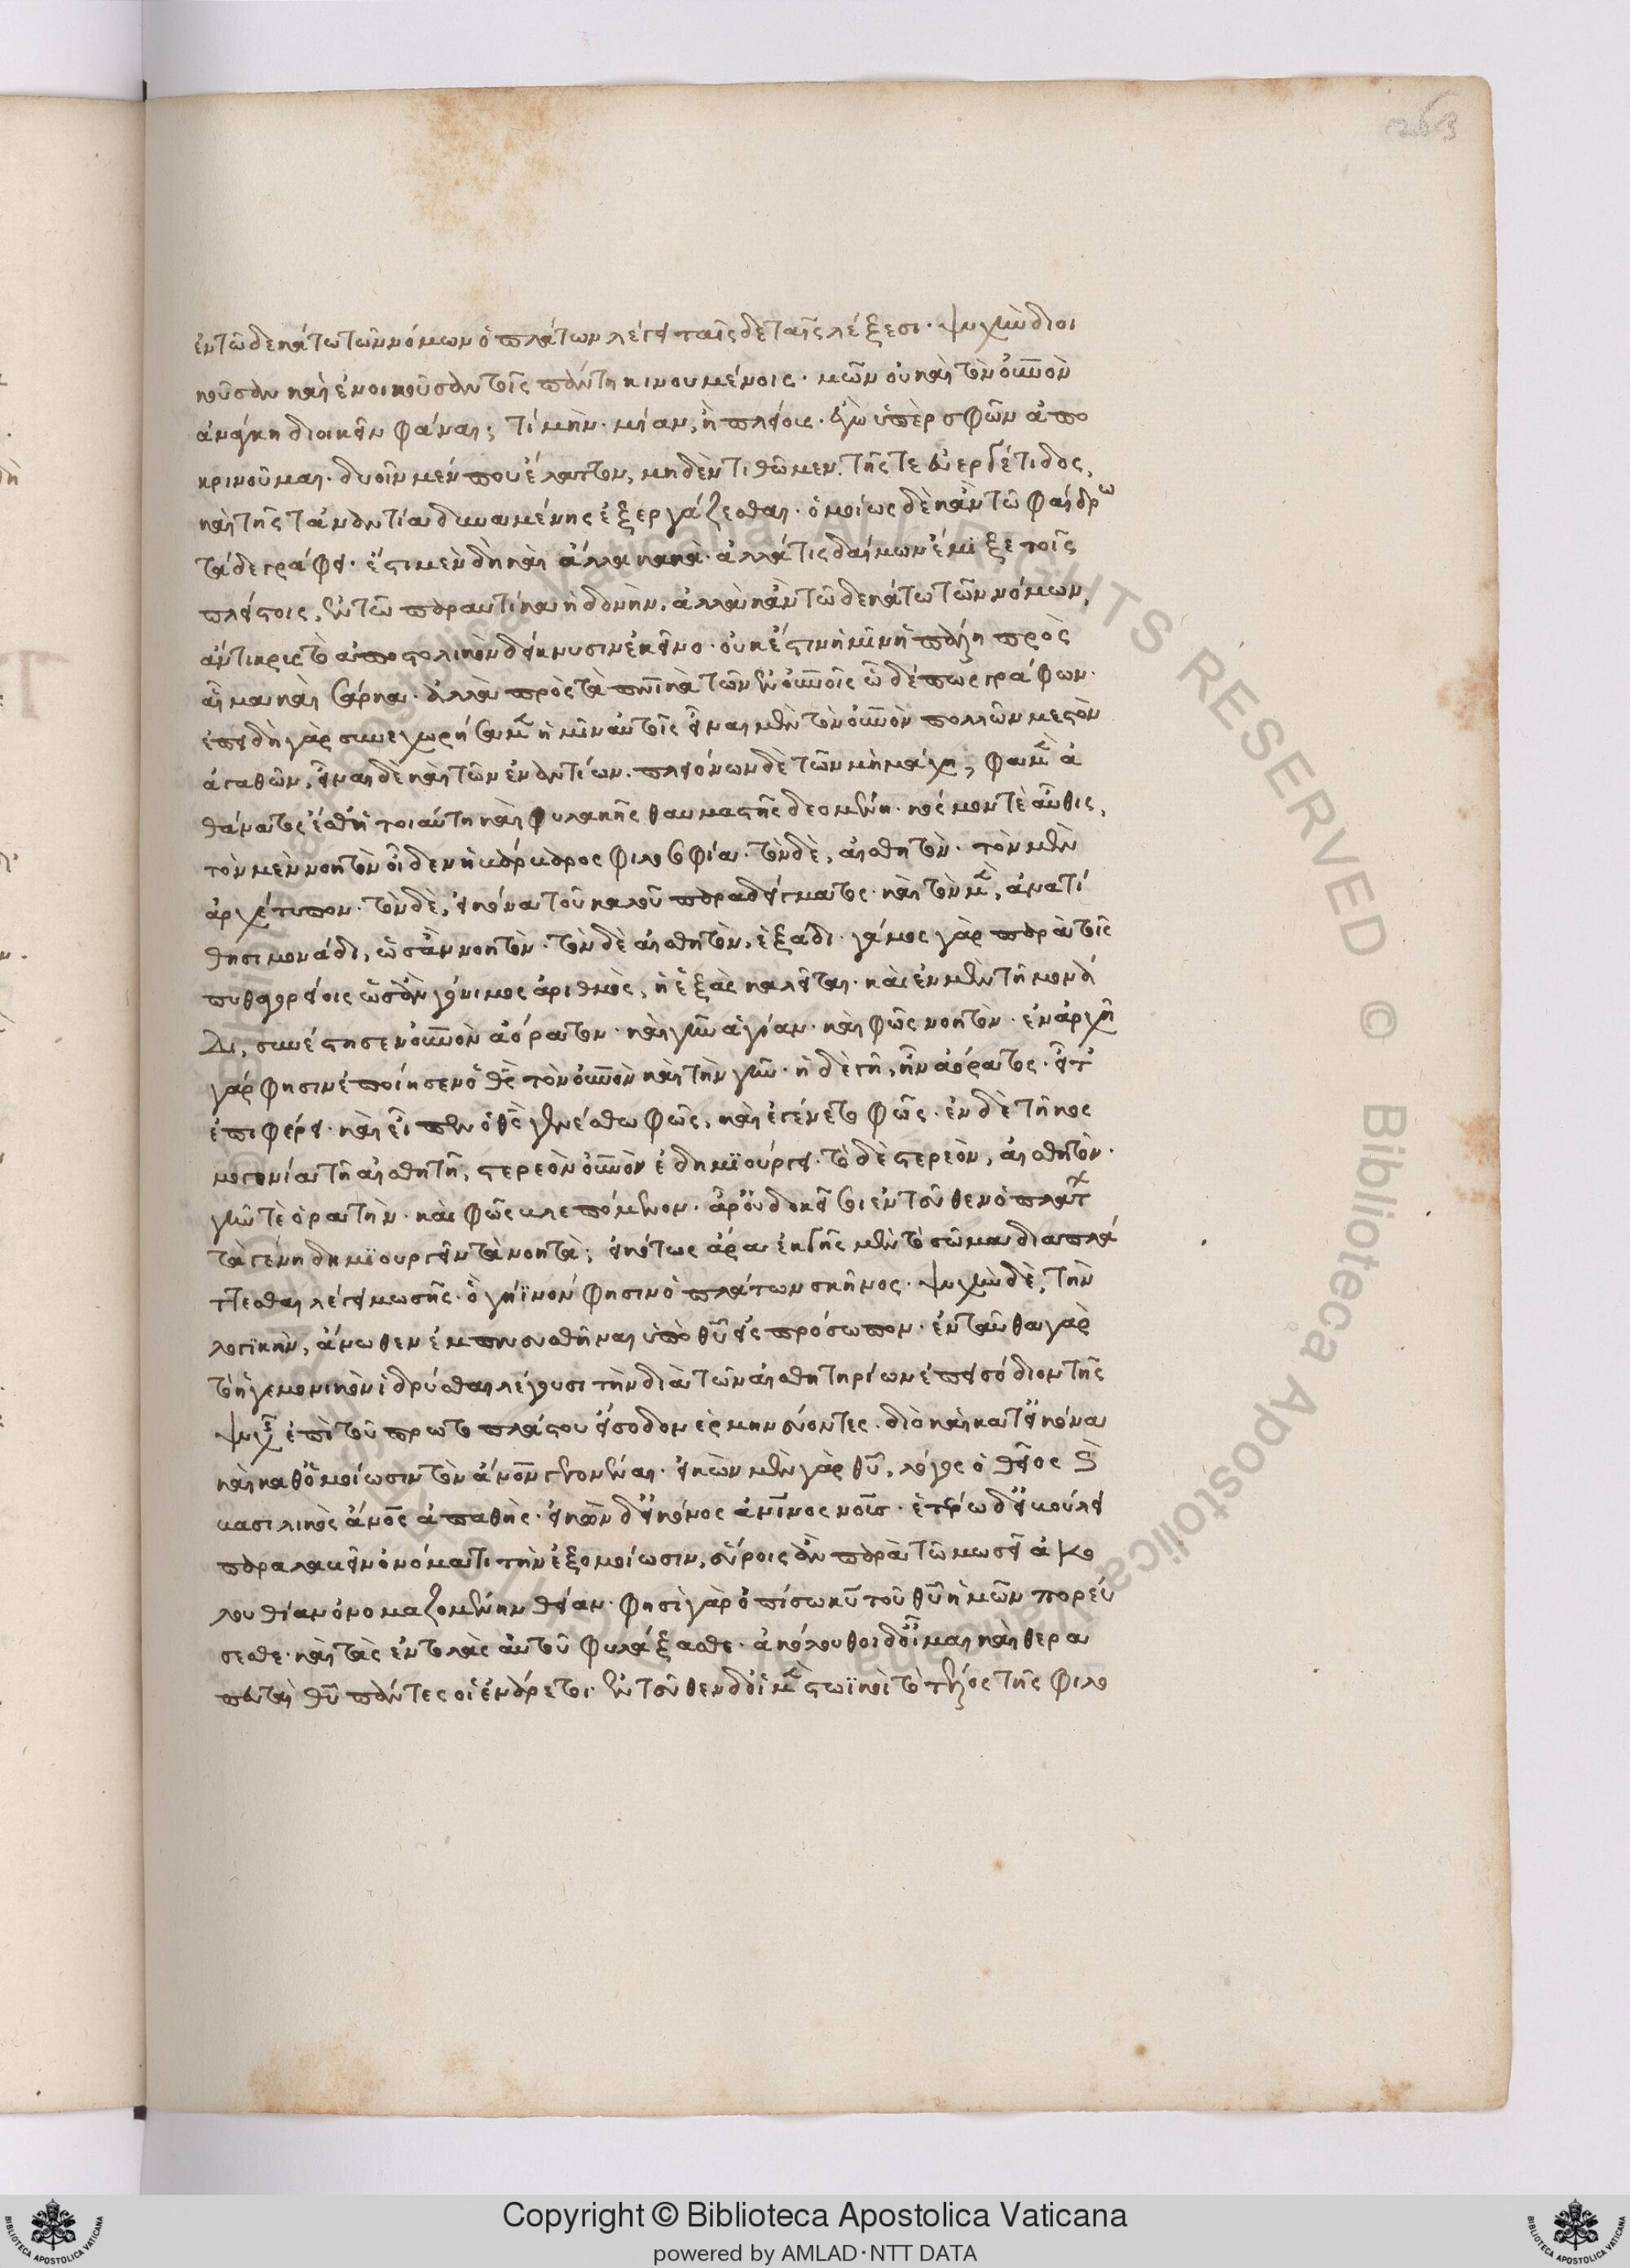 ἐν τῶ δεκάτω τῶν νόμων ὁ πλάτων λέγει ταῖς δε ταῖς λέξεσι· ψυχὴν διοι
κοῦσαν καὶ ἐνοικοῦσαν τοῖς πάντη κινουμένοις· μῶν οὐ καὶ τὸν οὐνὸν
ἀνάγκη διοικεῖν φάναι; τί μὴν· μίαν, ἢ πλείους· ἐγὼ ὑπὲρ σφῶν ἀπο
κρινοῦμαι· δυοῖν μέν που ἔλαττον, μηδὲν τιθῶμεν· τῆς τε εὐεργέτιδος,
καὶ τῆς τἀναντία δυναμένης ἐξεργάζεσθαι· ὁμοίως δὲ κἀν τῶ φαίδρω
τάδε γράφει· ἔστι μὲν δὴ καὶ ἄλλα κακὰ· ἀλλά τις δαίμων ἔμιξε τοῖς
πλείστοις, ἐν τῶ παραυτίκα ἡδονὴν· ἀλλὰ κἀν τῶ δεκάτω τῶν νόμων,
ἄντικρις τὸ ἀποστολικὸν δείκνυσιν ἐκεῖνο· οὐκ ἔστιν ἡμῖν ἡ πάλη πρὸς
αἷμα καὶ σάρκα· ἀλλὰ πρὸς τὰ πνικὰ τῶν ἐν οὐνοῖς ὧδέ πως γράφων·
ἐπειδὴ γὰρ συνεχωρήσαμεν ἡμῖν αὐτοῖς εἶναι μὲν τὸν οὐνὸν πολλῶν μεστὸν
ἀγαθῶν, εἶναι δὲ καὶ τῶν ἐναντίων· πλειόνων δὲ τῶν μὴ μάχη; φαμὲν ἀ
θάνατος ἐσθ' ἡ τοιαύτη καὶ φυλακῆς θαυμαστῆς δεομένη· κόσμον τὲ αὖθις,
τὸν μὲν νοητὸν οἶδεν ἡ βάρβαρος φιλοσοφία· τὸν δὲ, αἰσθητὸν· τὸν μὲν
ἀρχέτυπον· τὸν δὲ, εἰκόνα τοῦ καλοῦ παραδείγματος· καὶ τὸν μὲν, ἀνατί
θησι μονάδι, ὡσὰν νοητὸν· τὸν δὲ αἰσθητὸν, ἑξάδι· γάμος γὰρ παρὰ τοῖς
πυθαγορείοις ὡσὰν γόνιμος ἀριθμὸς, ἡ ἑξὰς καλεῖται· καὶ ἐν μὲν τῆ μονά
δι, συνέστησεν οὐνὸν ἀόρατον· καὶ γῆν ἁγίαν· καὶ φῶς νοητὸν· ἐν ἀρχῆ
γάρ φησιν ἐποίησεν ὁ θς τὸν οὐνὸν καὶ τὴν γῆν· ἡ δὲ γῆ, ἦν ἀόρατος· εἶτ'
ἐπιφέρει· καὶ εἶπεν ὁ θς γενέσθω φῶς, καὶ ἐγένετο φῶς· ἐν δὲ τῆ κος
μογονία τῆ αἰσθητῆ, στερεὸν οὐνὸν ἐδημϊούργει· τὸ δὲ στερεὸν, αἰσθητὸν·
γῆν τὲ ὁρατὴν· καὶ φῶς βλεπόμενον· ἆρ' οὐ δοκεῖ σοι ἐντεῦθεν ὁ πλάτ
τὰ γένη δημϊουργεῖν τὰ νοητὰ; εἰκότως ἄρα ἐκ γῆς μὲν τὸ σῶμα διαπλά
ττεσθαι λέγει μωσῆς· ὃ γήϊνόν φησιν ὁ πλάτων σκῆνος· ψυχὴν δὲ, τὴν
λογϊκὴν, ἄνωθεν ἐμπνευσθῆναι ὑπὸ θυ εἰς πρόσωπον· ἐνταῦθα γὰρ
τὸ ἡγεμονικὸν ἱδρύσθαι λέγουσι τὴν διὰ τῶν αἰσθητηρίων ἐπεισόδιον τῆς
ψυχῆς ἐπὶ τοῦ πρωτοπλάστου εἴσοδον ἑρμηνεύοντες· διὸ καὶ κατ' εἰκόνα
καὶ καθ' ὁμοίωσιν τὸν ἄνον γεγονέναι· εἰκὼν μὲν γὰρ θυ, λόγος ὁ θεῖος ϗ
βασιλικὸς ἄνος ἀπαθὴς· εἰκὼν δ' εἰκόνος ἀνινος νοῦς· ἑτέρω δ' εἰ βούλει
παραλαβεῖν ὀνόματι τὴν ἐξομοίωσιν, εὕροις ἂν παρὰ τῶ μωσεῖ ἀκο
λουθίαν ὀνομαζομένην θείαν· φησὶ γὰρ ὀπίσω κυ τοῦ θυ ἡμῶν πορεύ
σεσθε· καὶ τὰς ἐντολὰς αὐτοῦ φυλάξασθε· ἀκόλουθοι δ' οἶμαι καὶ θερα
πευταὶ θυ πάντες οἱ ἐνάρετοι· ἐντεῦθεν δ' οἱ μὲν στωϊκοὶ τὸ τέλος τῆς φιλο